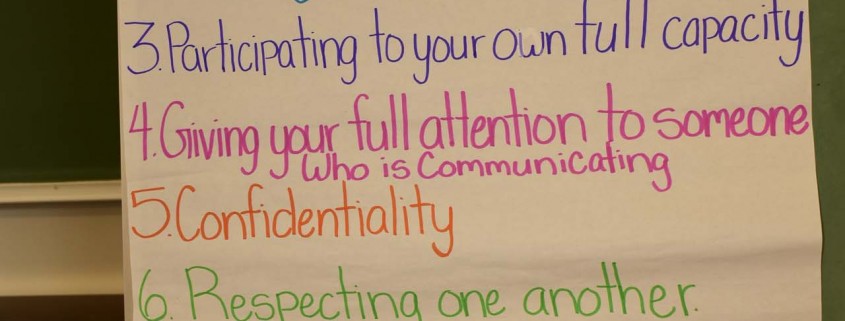 3. Participating to your own full capacity
4. Giving your full attention to someone
who is Communicating
5. Confidentiality
6. Respecting one another.